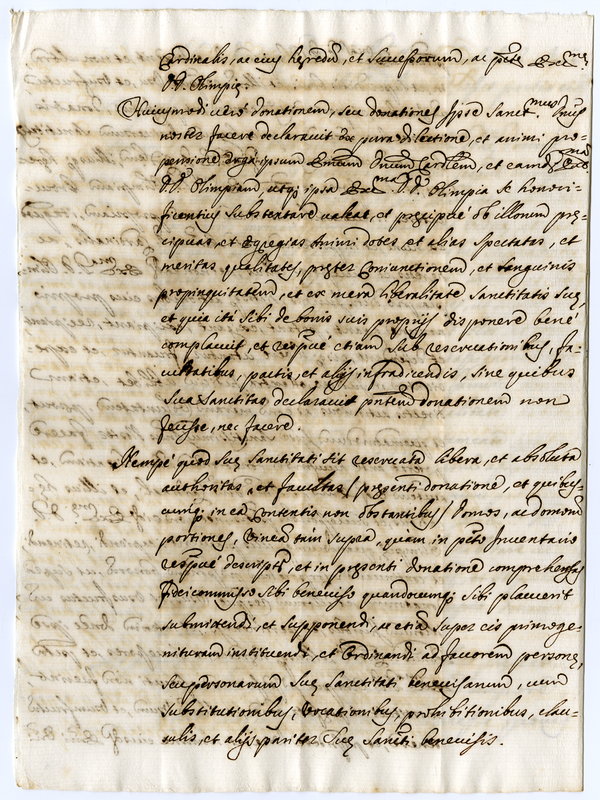 Cardinalis, ac eius hęredum, et successorum, ac ptę Excmę
D. D. Olimpię.
Huiusmodi uerò donationem, seu donationes ipse Sanctmus Dnus
noster facere declarauit ex pura dilectione, et animi pro=
pensione erga ipsum Emum Dnum Cardlem, et eamdem Excmam
D. D. Olimpiam, utq; ipsa Excma D. D. Olimpia se honori=
ficentius substentare ualeat, et pręcipuè ob illorum prę=
cipuas, et egregias animi dotes, et alias spectatas, et
meritas qualitates, pręter coniunctionem, et sanguinis
propinquitatem, et ex mera liberalitate Sanctitatis Suę,
et quia ità sibi de bonis suis proprijs disponere benè
complacuit, et respuè etiam sub reseruationibus, fa=
cultatibus, pactis, et alijs infradicendis, sine quibus
Sua Sanctitas declarauit pntem donationem non
fecisse, nec facere.
Nempè quod Suę Sanctitati sit reseruata libera, et absoluta
authoritas, et facultas / pręsenti donatione, et quibus=
cumq; in ea contentis non obstantibus / Domos, ac domorum
portiones, Vineã tam supra, quam in pto Inuentario
respuè descriptas, et in pręsenti donatione comprehensas
Fideicommisso sibi beneuiso quandocumq; sibi placuerit
submittendi, et supponendi, ac etiã super eis primoge=
nituram instituendi, et Ordinandi ad fauorem personę,
seu personarum Suę Sanctitati beneuisarum, cum
substitutionibus, Vocationibus, prohibitionibus, clau=
sulis, et alijs pariter Suę Sancti beneuisis.